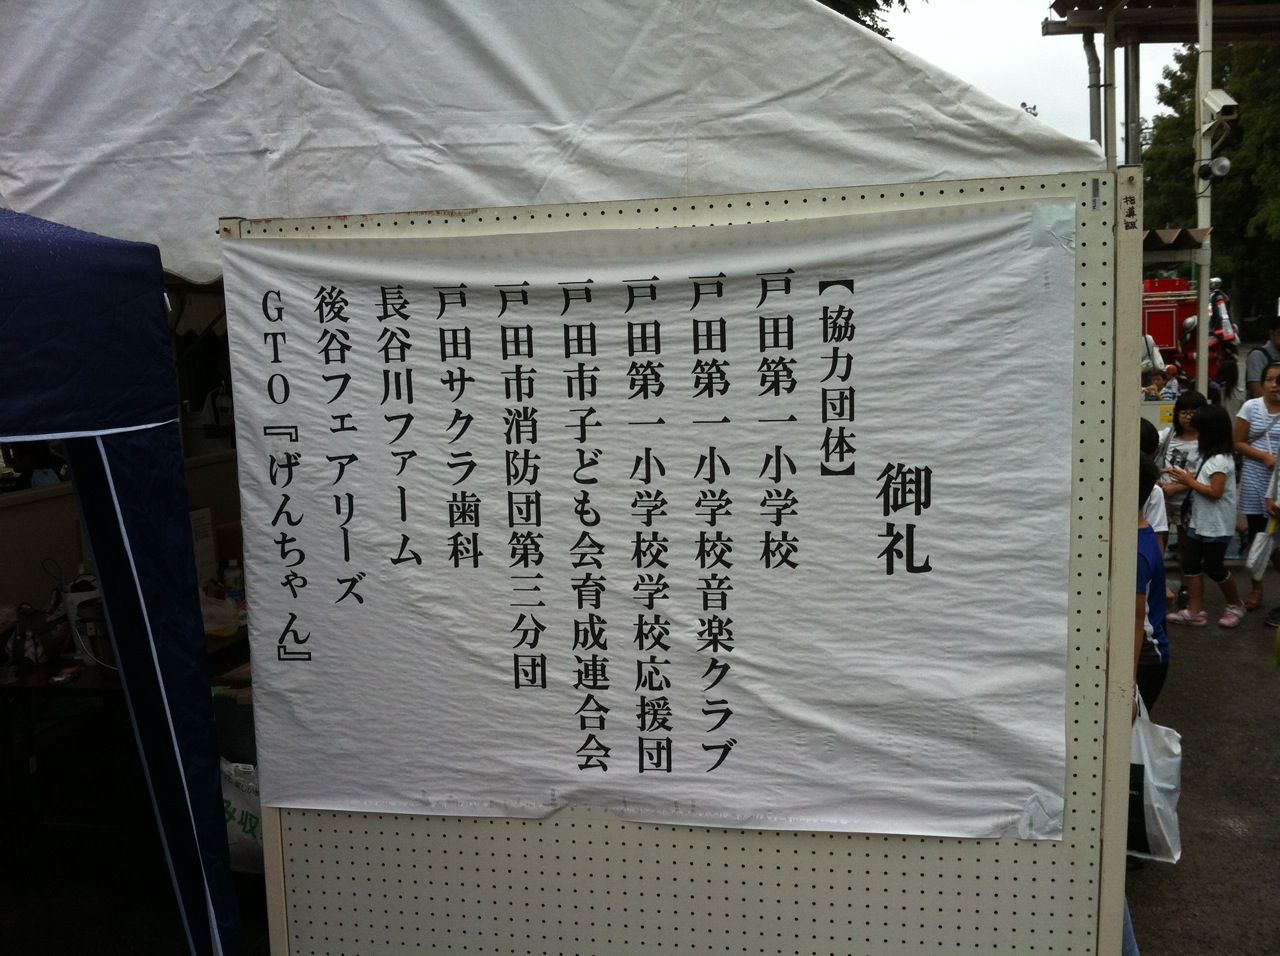 御礼
【協力団体】
戸田第一小学校
戸田第一小学校音楽クラブ
戸田第一小学校学校応援団
戸田市子ども会育成連合会
戸田市消防団第三分団
戸田サクラ歯科
長谷川ファーム
後谷フェアリーズ
GTO『げんちゃん』